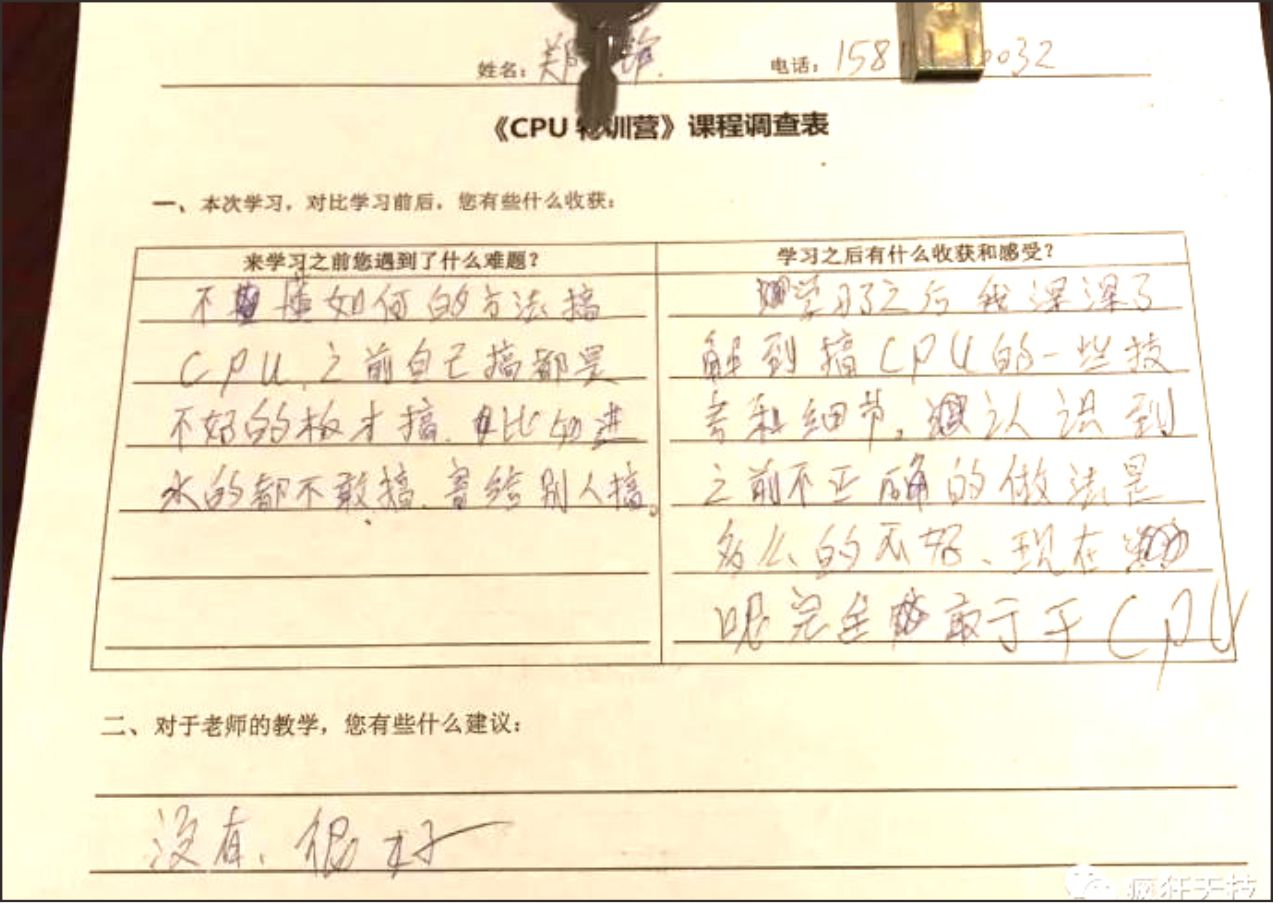 姓名：郑
电话：158 0032
《CPU 特训营》课程调查表
一、本次学习，对比学习前后，您有些什么收获：
来学习之前您遇到了什么难题？
不懂如何的方法搞
CPU，之前自己搞都是
不好的板才搞、比如进
水的都不敢搞、寄给别人搞。
学习之后有什么收获和感受？
学习了之后我深深了
解到搞CPU的一些技
考和细节，认识到
之前不正确的做法是
多么的不好、现在
呢完全敢于干CPU
二、对于老师的教学，您有些什么建议：
没有、很好